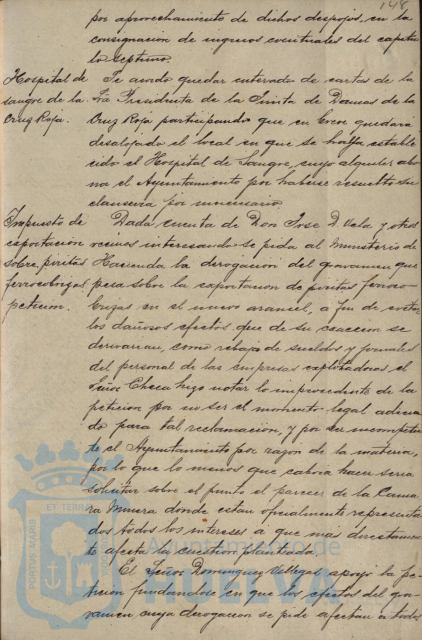 148
por aprovechamiento de dichos despojos, en la
consignacion de ingresos eventuales del capitu
lo septimo.
Hospital de
sangre de la
Cruz Roja.
Se acordó quedar enterado de cartas de la
Sra Presidenta de la Junta de Damas de la
Cruz Roja participando que en breve quedará
desalojado el local en que se halla estable
cido el Hospital de Sangre, cuyo alquiler abo
na el Ayuntamiento por haberse resuelto su
clausura por innecesario
Impuesto de
exportacion
sobre piritas
ferrocobrizas
peticion.
Dada cuenta de Don Jose D. Vela y otros
vecinos interesando se pida al Ministerio de
Hacienda la derogacion del gravamen que
pesa sobre la exportacion de piritas ferroco-
brizas en el nuevo arancel, a fin de evitar
los dañosos efectos que de su exaccion se
derivarian, como rebaja de sueldos y jornales
del personal de las empresas explotadoras, el
Señor Checa hizo notar lo improcedente de la
peticion por no ser el momento legal adecua
do para tal reclamacion, y por ser incompeten
te el Ayuntamiento por razon de la materia,
por lo que lo menos que cabria hacer seria
solicitar sobre el punto el parecer de la Cama
ra Minera donde estan oficialmente representa
dos todos los intereses a que mas directamen
te afecta la cuestion planteada.
El Señor Dominguez Villegas apoyó la pe
ticion fundandose en que los efectos del gra
vamen cuya derogacion se pide afectan a todos
PORTUS MARIS
ET TERRÆ
Ayuntamiento de
HUELVA